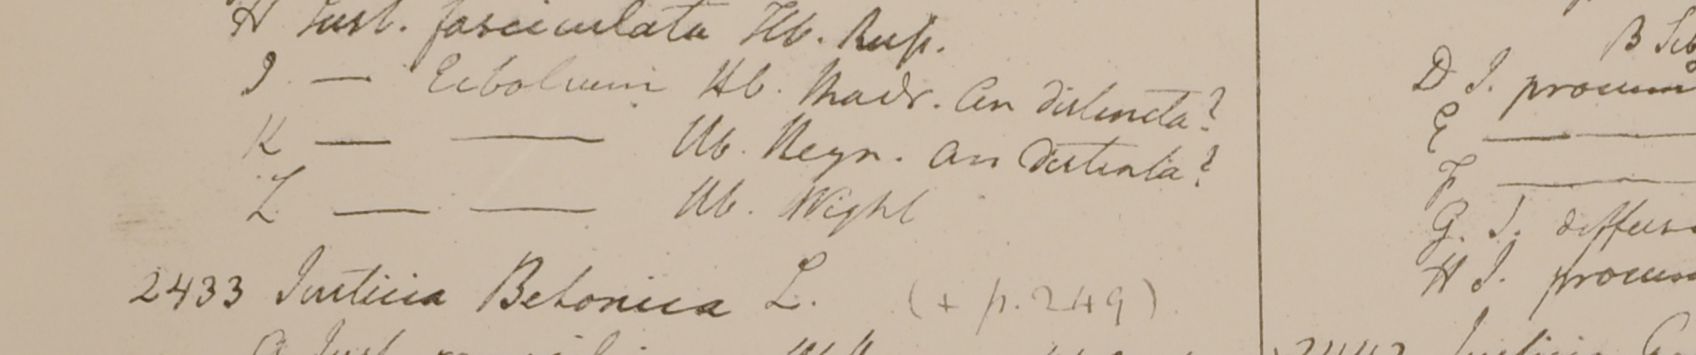 H Just. fasciculata Hb. Russ.
I — Ecbolium Hb. Madr. an distincta?
K — — Hb. Heyn. an distincta?
L — — Hb. Wight
2433 Justicia Betonica L. (+ p. 249)
D J. procum
E —
F —
G. J. diffus
H J. procum